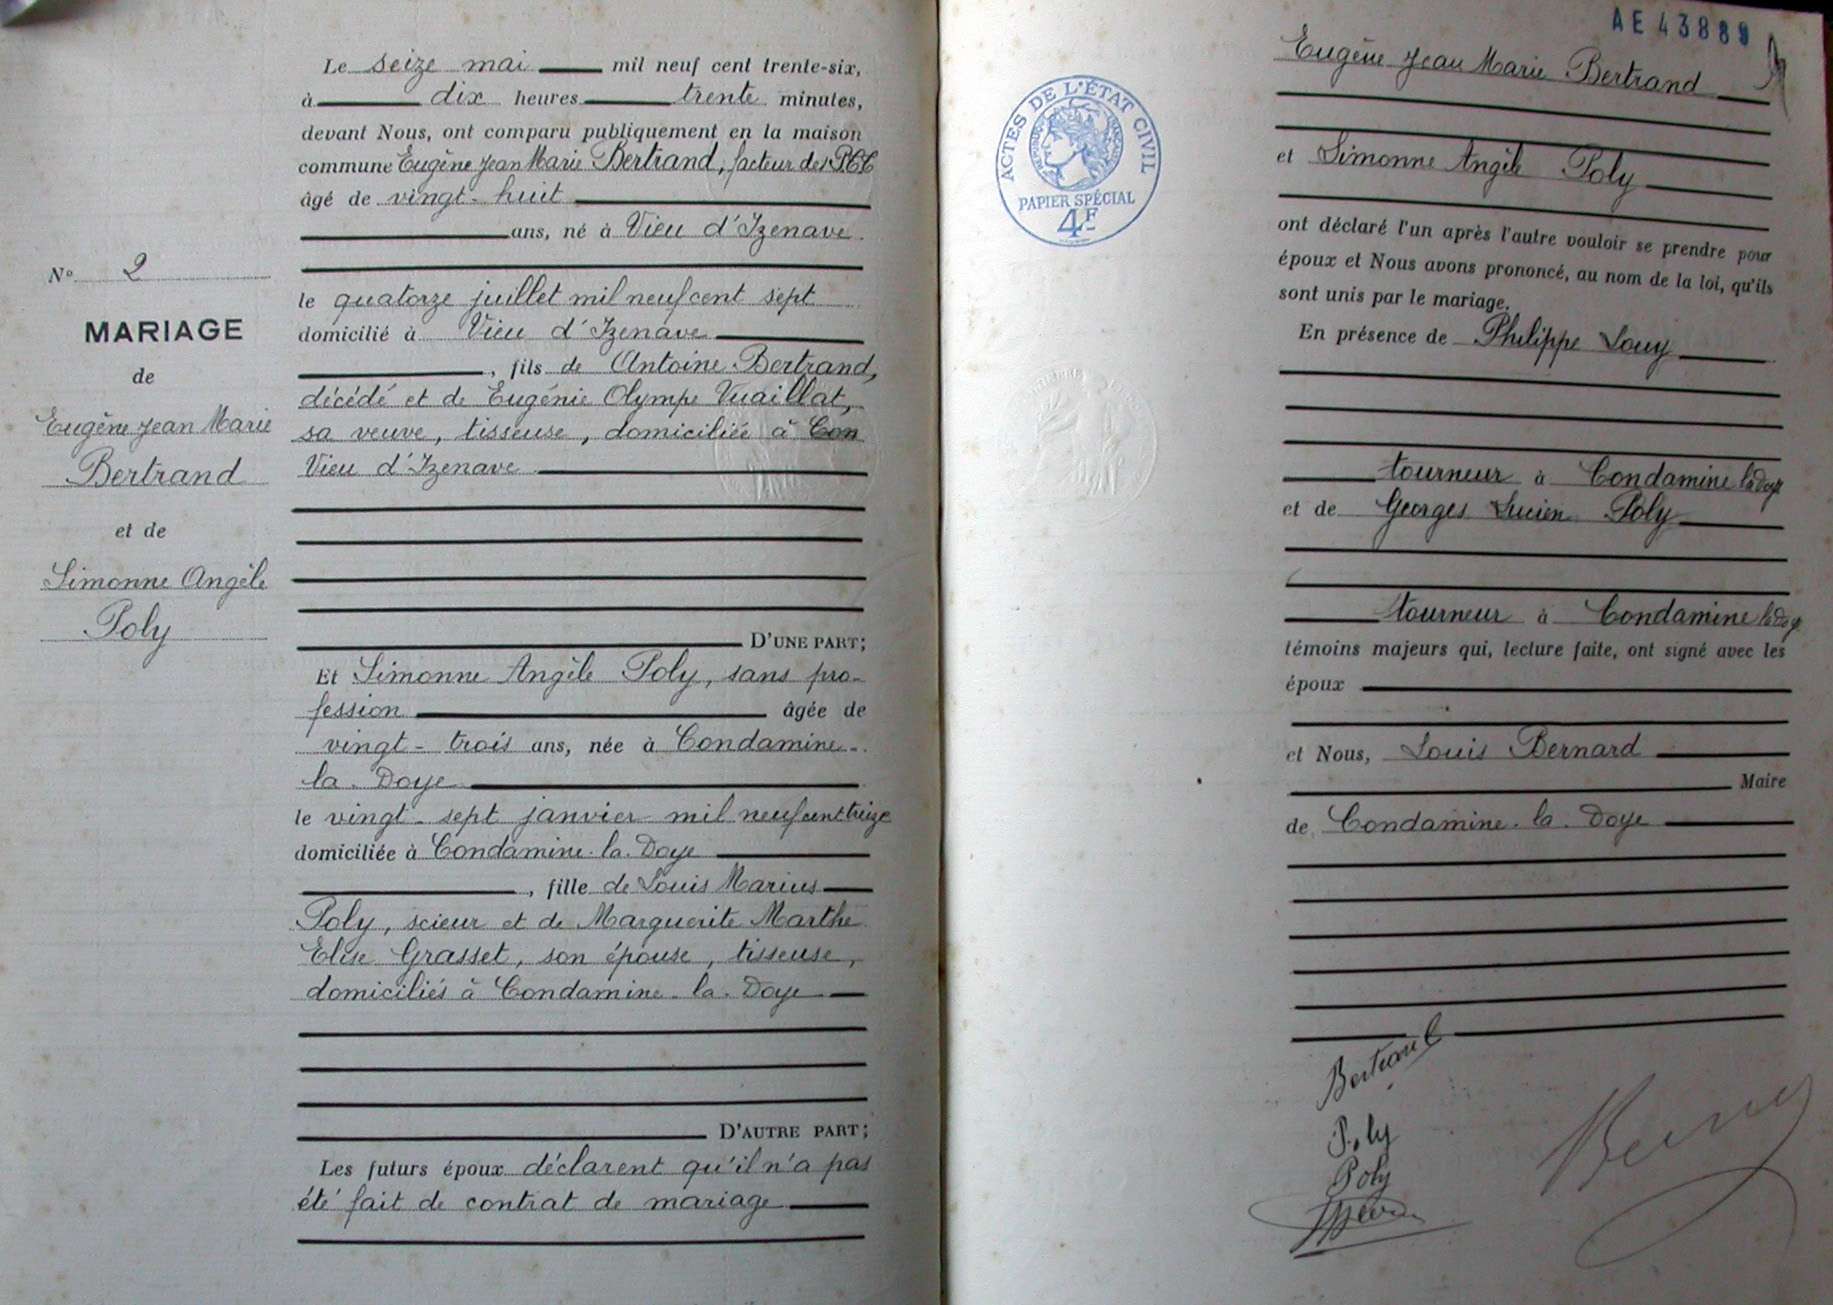 Nº 2
MARIAGE
de
Eugène Jean Marie
Bertrand
et de
Simonne Angèle
Poly
Le seize mai mil neuf cent trente-six,
à dix heures trente minutes,
devant Nous, ont comparu publiquement en la maison
commune Eugène Jean Marie Bertrand, facteur des P.T.T.
âgé de vingt-huit
ans, né à Vieu d'Izenave
le quatorze juillet mil neuf cent sept
domicilié à Vieu d'Izenave
, fils de Antoine Bertrand,
décédé et de Eugénie Olympe Vuaillat,
sa veuve, tisseuse, domiciliée à Con
Vieu d'Izenave
D'UNE PART;
Et Simonne Angèle Poly, sans pro-
fession âgée de
vingt-trois ans, née à Condamine-
la-Doye
le vingt-sept janvier mil neuf cent treize
domiciliée à Condamine-la-Doye
, fille de Louis Marius
Poly, scieur et de Marguerite Marthe
Elise Grasset, son épouse, tisseuse,
domiciliés à Condamine-la-Doye
D'AUTRE PART;
Les futurs époux déclarent qu'il n'a pas
été fait de contrat de mariage
AE 43889
ACTES DE L'ÉTAT CIVIL
PAPIER SPÉCIAL
4F
Eugène Jean Marie Bertrand
et Simonne Angèle Poly
ont déclaré l'un après l'autre vouloir se prendre pour
époux et Nous avons prononcé, au nom de la loi, qu'ils
sont unis par le mariage.
En présence de Philippe Louy
tourneur à Condamine la Doye
et de Georges Lucien Poly
tourneur à Condamine la Doye
témoins majeurs qui, lecture faite, ont signé avec les
époux
et Nous, Louis Bernard
Maire
de Condamine-la-Doye
Bertrand
Poly
Poly